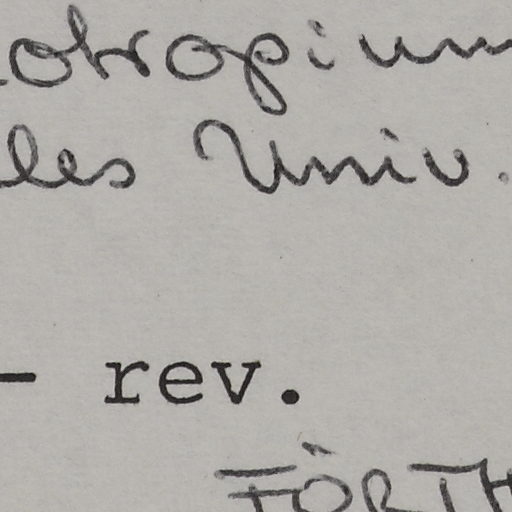 otropium
les Univ.
- rev.
FÖRTH